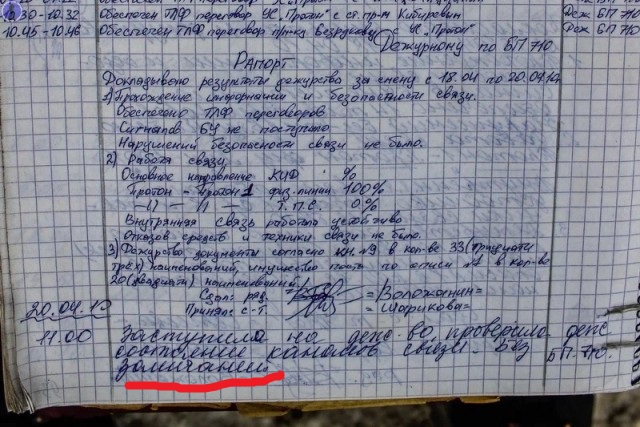 10.30 - 10.32 Обеспечен ТЛФ переговор УС „Протон" с ст. пр-к Кибиревич Деж БП 710
10.45 - 10.46 Обеспечен ТЛФ переговор пр-ка Безрукову с УС „Протон" Деж БП 710
Дежурному по БП 710
Рапорт
Докладываю результаты дежурства за смену с 18.04 по 20.04.10
1) Прохождение информации и безопасности связи.
Обеспечено ТЛФ переговоров
Сигналов БУ не поступало
Нарушений безопасности связи не было.
2) Работа связи.
Основное направление КИД %
Протон - Протон 1 физ. линии 100%
-//- -//- Т.П.С. 0%
Внутренняя связь работала устойчиво
Отказов средств и техники связи не было.
3) Дежурство, документы согласно №9 в кол-ве 33 (тридцати
трех) наименований, имущество поста по описи №1 в кол-во
20 (двадцать) наименований
Сдал: ряд. =Воложанин=
Принял: с-т. =Шарикова=
20.04.10
11.00 Заступила на деж-во, проверила
состояние каналов связи. Без БП-710.
замечаний